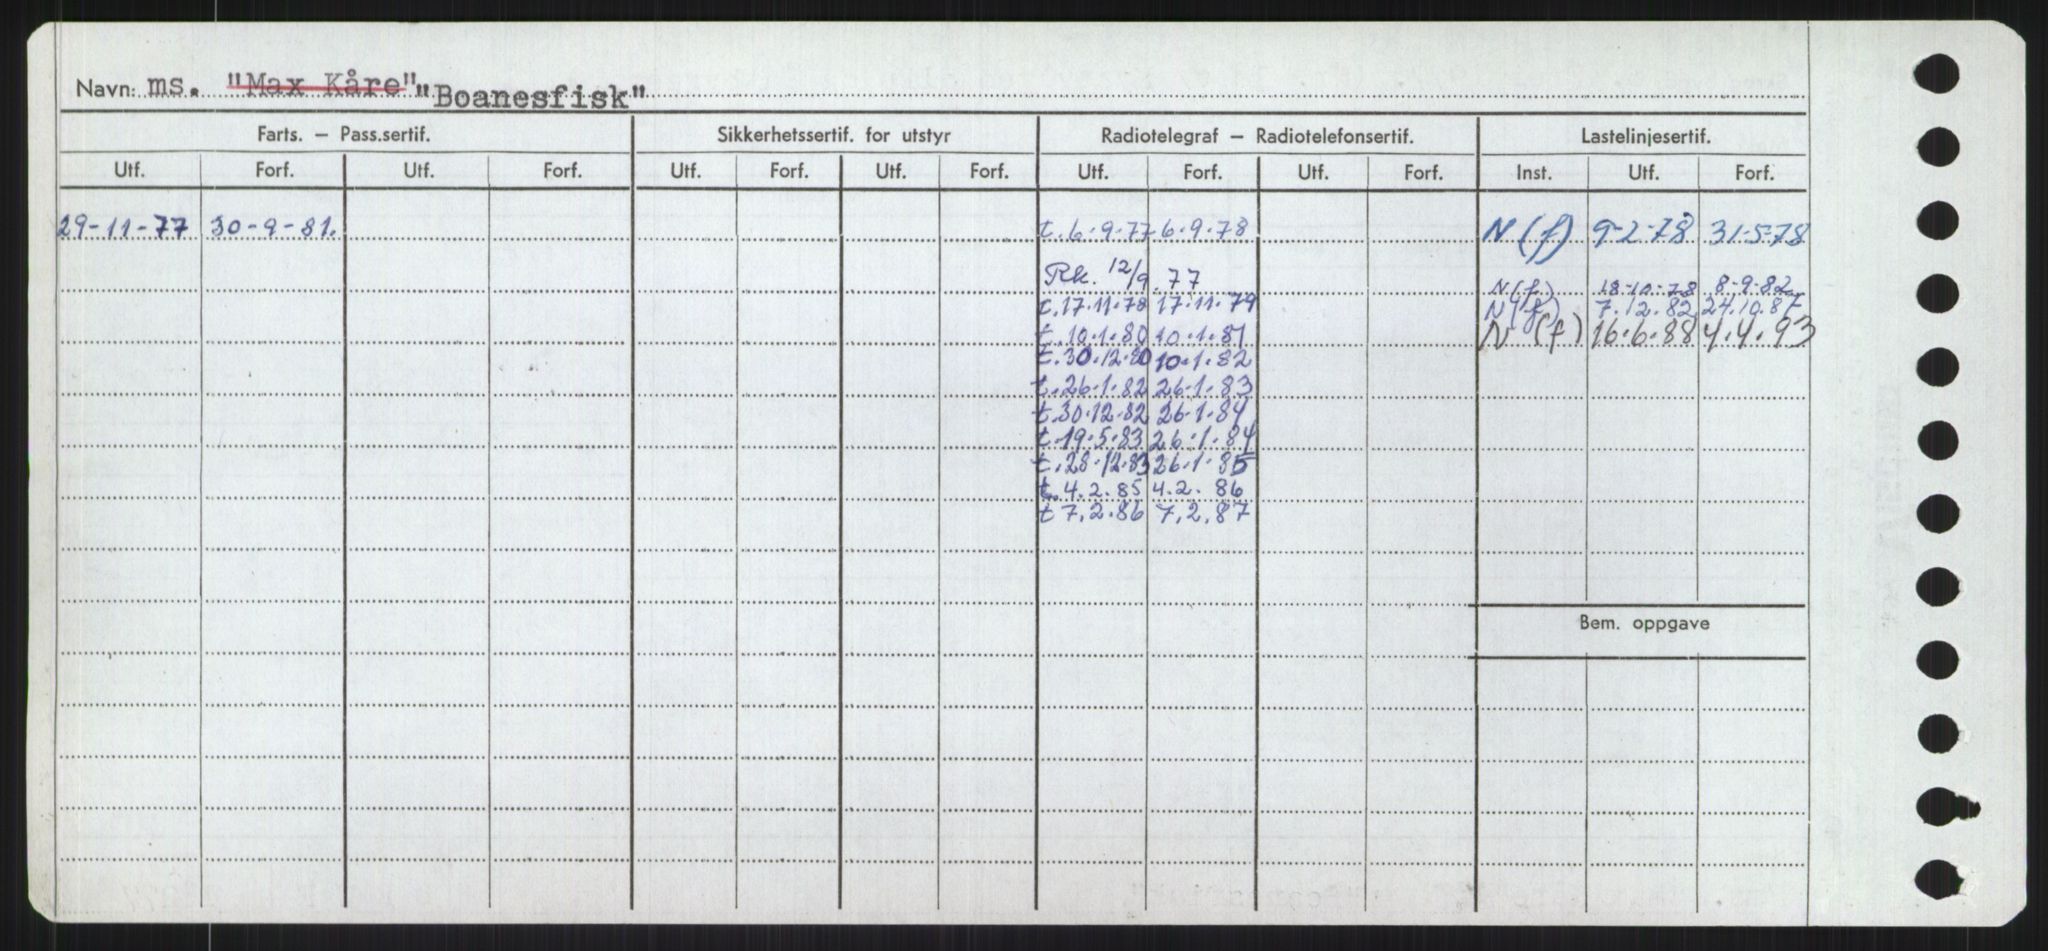 Navn: ms. "Max Kåre" "Boanesfisk"
Farts. – Pass.sertif. Sikkerhetssertif. for utstyr Radiotelegraf – Radiotelefonsertif. Lastelinjesertif.
Utf. Forf. Utf. Forf. Utf. Forf. Utf. Forf. Utf. Forf. Utf. Forf. Inst. Utf. Forf.
29-11-77 30-9-81. t.6.9.77 6.9.78 N (f) 9-2-78 31-5-78
Rk. 12/9.77 N(f.) 18-10-78 8-9-82
t.17.11.78 17.11.79 N (f) 7.12.82 24.10.87
t.10.1.80 10.1.81 N (f) 16.6.88 4.4.93
t.30.12.80 10.1.82
t.26.1.82 26.1.83
t.30.12.82 26.1.84
t.19.5.83 26.1.84
t.28.12.83 26.1.85
t.4.2.85 4.2.86
t 7.2.86 7.2.87
Bem. oppgave